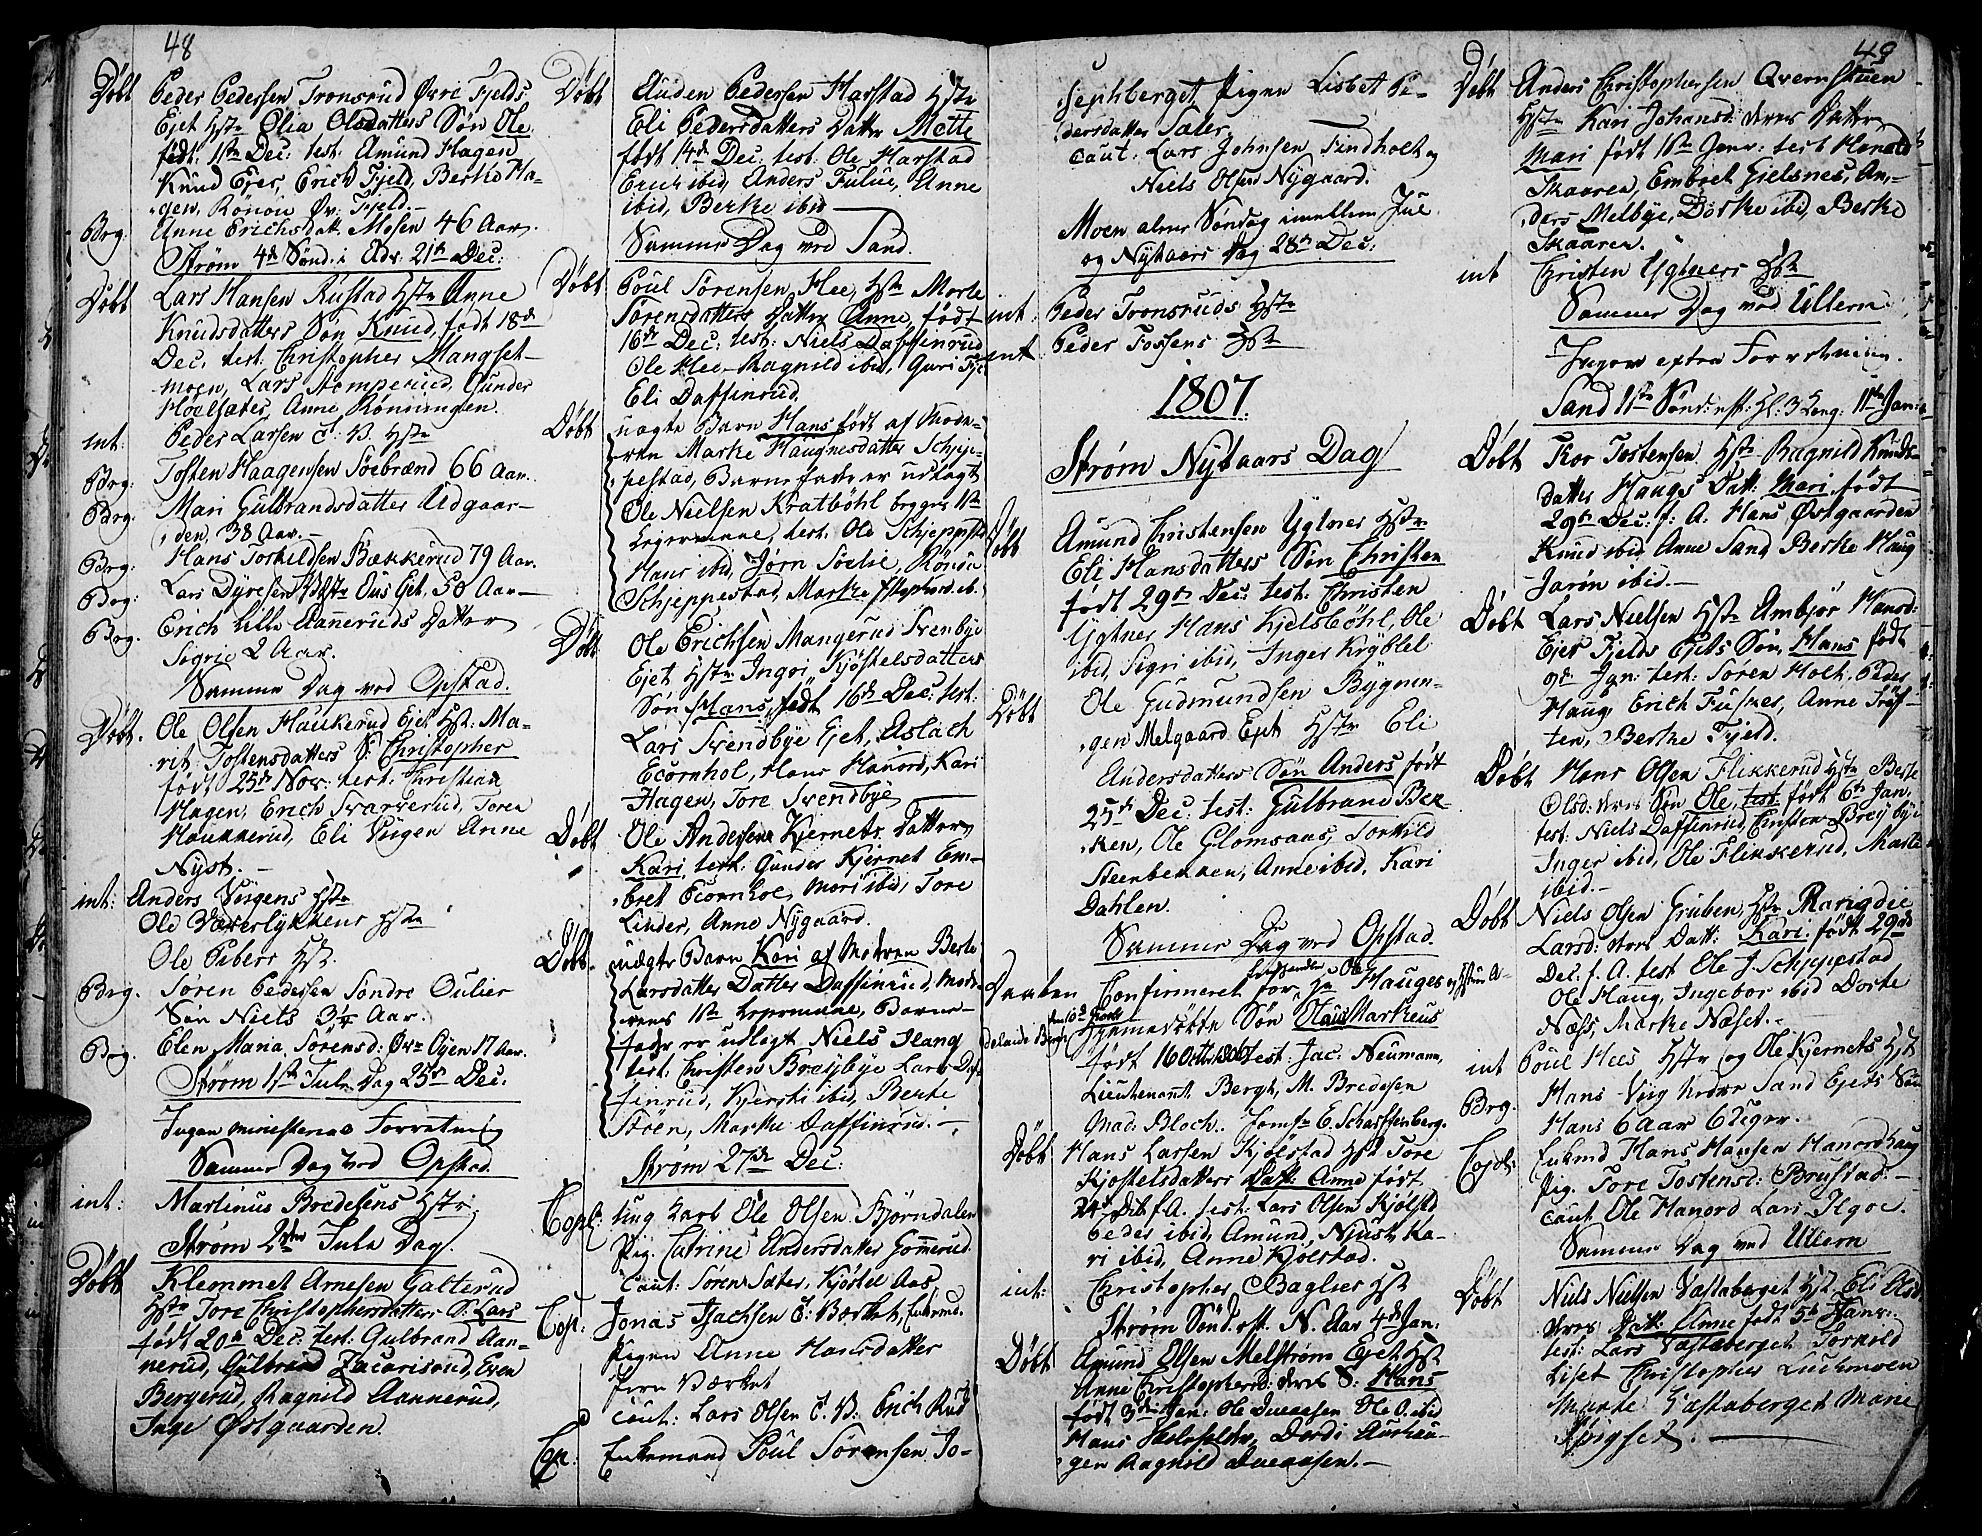 48
Døbt Peder Pedersen Tronsrud Øvre Fjelds
Ejet Hstr Olia Olsdatters Søn Ole
født 11te Dec: test. Amund Hagen
Knud Ejer, Erich Fjeld, Berthe Ha-
gen, Rönou Øv. Fjeld.-
Brg: Anne Erichsdatt. Mosen 46 Aar.
Strøm 4de Sönd: i Adv. 21de Dec:
Døbt Lars Hansen Rustad Hstr Anne
Knudsdatters Søn Knud, født 18de
Dec: test. Christopher Mangset-
moen, Lars Stomperud, Gunder
Hoelsæter, Anne Rönningen.
int: Peder Larsen E: V. Hstr
Brg: Tosten Haagensen Söebrænd 66 Aar.
Brg: Mari Gulbrandsdatter Udgaar-
den, 38 Aar.-
Brg: Hans Torkildsen Bækkerud 79 Aar.
Brg: Lars Dyresen Ous Ejet, 58 Aar-
Brg. Erich Lille Aannerüds Datter
Sigrie 2 Aar.
Samme Dag ved Opstad.
Døbt. Ole Olsen Haukerud Ejet Hst: Ma-
rit Tostensdatters S: Christopher
født 23de Nov: test. Christian
Hagen, Erich Svarverud, Toren
Haukkerud, Eli Viigen Anne
Nyst.-
int: Anders Viigens Hstr
Ole Væverlykkens Hstr
Ole Pibers Hst.
Brg. Søren Pedersen Søndre Oulier
Søn Niels 3¼ Aar.
Brg. Elen Maria Sørensd: Øvre Oyen 17 Aar.
Strøm 1ste Jule Dag 25de Dec:
Ingen ministeriel Forretning
Samme Dag ved Opstad
int: Martinus Bredesens Hstr.
Strøm 2den Jule Dag.
Døbt Klemmet Arnesen Galterud
Hstr Tore Christophersdatters S: Lars
født 20de Dec: test: Gulbrand Aan-
nerud, Gulbrand Zacarisrud, Even
Bergerud, Ragnild Aannerud,
Inge Østgaarden.
Døbt Auden Pedersen Harstad Hstr
Eli Pedersdatters Datter Mette
født 14de Dec: test: Ole Harstad
Erich ibid, Anders Fulue, Anne
ibid, Berthe ibid
Samme Dag ved Sand.
Døbt Poul Sørensen Hee, Hstr Marte
Sørensdatters Datter Anne, født
16de Dec: test: Niels Daffinrud
Ole Hee- Ragnild ibid, Guri
Eli Daffinrud.
Døbt uægte Barn Hans født af Mode-
ren Marthe Haugnesdatter Schjep-
pestad, Barnefader er udlagt
Ole Nielsen Kratböhl begges 1ste
Legermaal, test. Ole Schjeppestad
Hans ibid, Jørn Soelie, Rönou
Schjeppestad, Marthe
Døbt Ole Erichsen Mangerud Svenbye
Ejet Hstr Ingri Kjöstelsdatters
Søn Hans, født 16de Dec: test:
Lars Svendbye Ejet, Aslach
Ecornhol, Hans Hanord, Kari
Hagen, Tore Svendbye
Døbt Ole Andersens Kjernets Datter
Kari, test: Gunder Kjernet Em-
bret Ecornhol, Mari ibid, Tore
Linder, Anne Nygaard.
Døbt. uægte Barn Kari af Moderen Berte
Larsdatter Datter Daffinrud, Mode-
rens 1ste Legermaal, Barne-
fader er udlagt Niels Haug
test. Christen Brejsbye Lars Daf-
finrud, Kjersti ibid, Berte
Støen, Marthe Daffinrud.-
Strøm 27de Dec:
Copl: Ung Karl Ole Olsen Björndalen
Pig. Catrine Andersdatter Gommerud
Caut: Søren Sæter, Kjöstel Aas
Cop: Jonas Isachsen E: Værket, Enkemd.
Pigen Anne Hansdatter
Jern Værket
Caut: Lars Olsen E. V: Erich Rud
Cop: Enkemand Poul Sørensen Jo-
sephberget, Pigen Lisbet Pe-
dersdatter Sæter
Caut: Lars Johnsen Tindholt og
Niels Olsen Nygaard.
Moen alner Søndag imellem Jue
og Nytaars Dag 28de Dec:
int: Peder Tronsruds Hstr
int Peder Fossens Hstr
1807.
Strøm Nytaars Dag
Døbt Amund Christensen Ygtner Hstr
Eli Hansdatters Søn Christen
født 29de Dec: test. Christen
Ygtner Hans Kjelsböhl, Ole
ibid, Sigri ibid, Inger Kryblel
Døbt Ole Gudmundsen Bygnin-
gen Melgaard Ejet Hstr Eli
Andersdatters Søn Anders født
25de Dec: test: Gulbrand Bek-
ken, Ole Glomsaas, Torkild
Steenbekken, Anne ibid, Kari
Dahlen.
Samme Dag ved Opstad.
Daaben Confirmeret for Hauges
Hjemmedøbte Søn Hans Markeus
født 16 Octr 1806 test: Jac: Neumann,
Lieuthenant Bergh, M. Bredesen
Mad. Bloch. Jomfr E. Schaffenberg.
Døbt Hans Larsen Kjölstad Hstr Tore
Kjöstelsdatters Datt: Anne født
24de Dec f. A. test: Lars Olsen Kjölstd
Peder ibid, Amund Njust, Ka-
ri ibid, Anne Kjolstad.
int: Christopher Baglies Hstr
Strøm Sönd. eft. N. Aar 4de Jan:
Døbt Amund Olsen Melstrøm Ejet Hstr
Anne Christophersd: deres S: Hans
født 3de Jan: Ole Ole A. ibid
Hans Dordi
gen Ragnild
49
Døbt Anders Christophersen Qvernstuen
Hstr Kari Johansd: deres Datter
Mari født 16de Janr: test Harald
Skaaren, Embret Gielsnes, An-
ders Melbye, Dorthe ibid, Berthe
Skaaren.
int Christen Ygtners Hstr
Samme Dag ved Ullern
Ingen extra Forretning.
Sand 1ste Sönd: eft: Hl. 3 Kong: 11te Jan:
Døbt Tor Tostensen Hstr Ragnild Knuds-
datter Haugs Datt: Mari, født
29de Dec: f: A. Hans Østgaarden
Knud ibid, Anne Sand Berthe Haug
Jarøn ibid.-
Døbt Lars Nielsen Hstr Ambjør Hansd:
Ejer Fjelds Ejets Søn, Hans født
Jan: test: Søren Holt. Peder
Haug, Erich Fusnes, Anne Tröf-
ten, Berthe Fjeld.
Døbt Hans Olsen Flikkerud Hstr Berte
Olsd: deres Søn Ole, test født 6te Jan.
test: Niels Daffinrud, Christen Brejsbye
Inger ibid, Ole Flikkerud, Marte
ibid.-
Døbt Niels Olsen Gruben, Hstr Marigdie
Larsd: deres Datt: Kari: født 29de
Dec. f. A. test Ole J. Schjeppestad
Ole Haug, Ingebor ibid Dorte
Næss, Marthe Næset.-
int Poul Hees Hstr og Ole Kjernets Hst
Brg. Hans Viig Sand Ejets Søn
Hans 6 Aar 6 Uger.
Copl: Enkemd Hans Hansen Hanordhaug
Pig. Tore Tostensd: Brustad.-
Caut Ole Hanord Lars Ilgoe.
Samme Dag ved Ullern
Døbt Niels Nielsen Vastaberget Hst. Eli Olsd
deres Datt: Anne født 5te Janr:
test: Lars Vastaberget Torkild
Liset Christopher
Marthe Vastaberget Marie
Spigset.